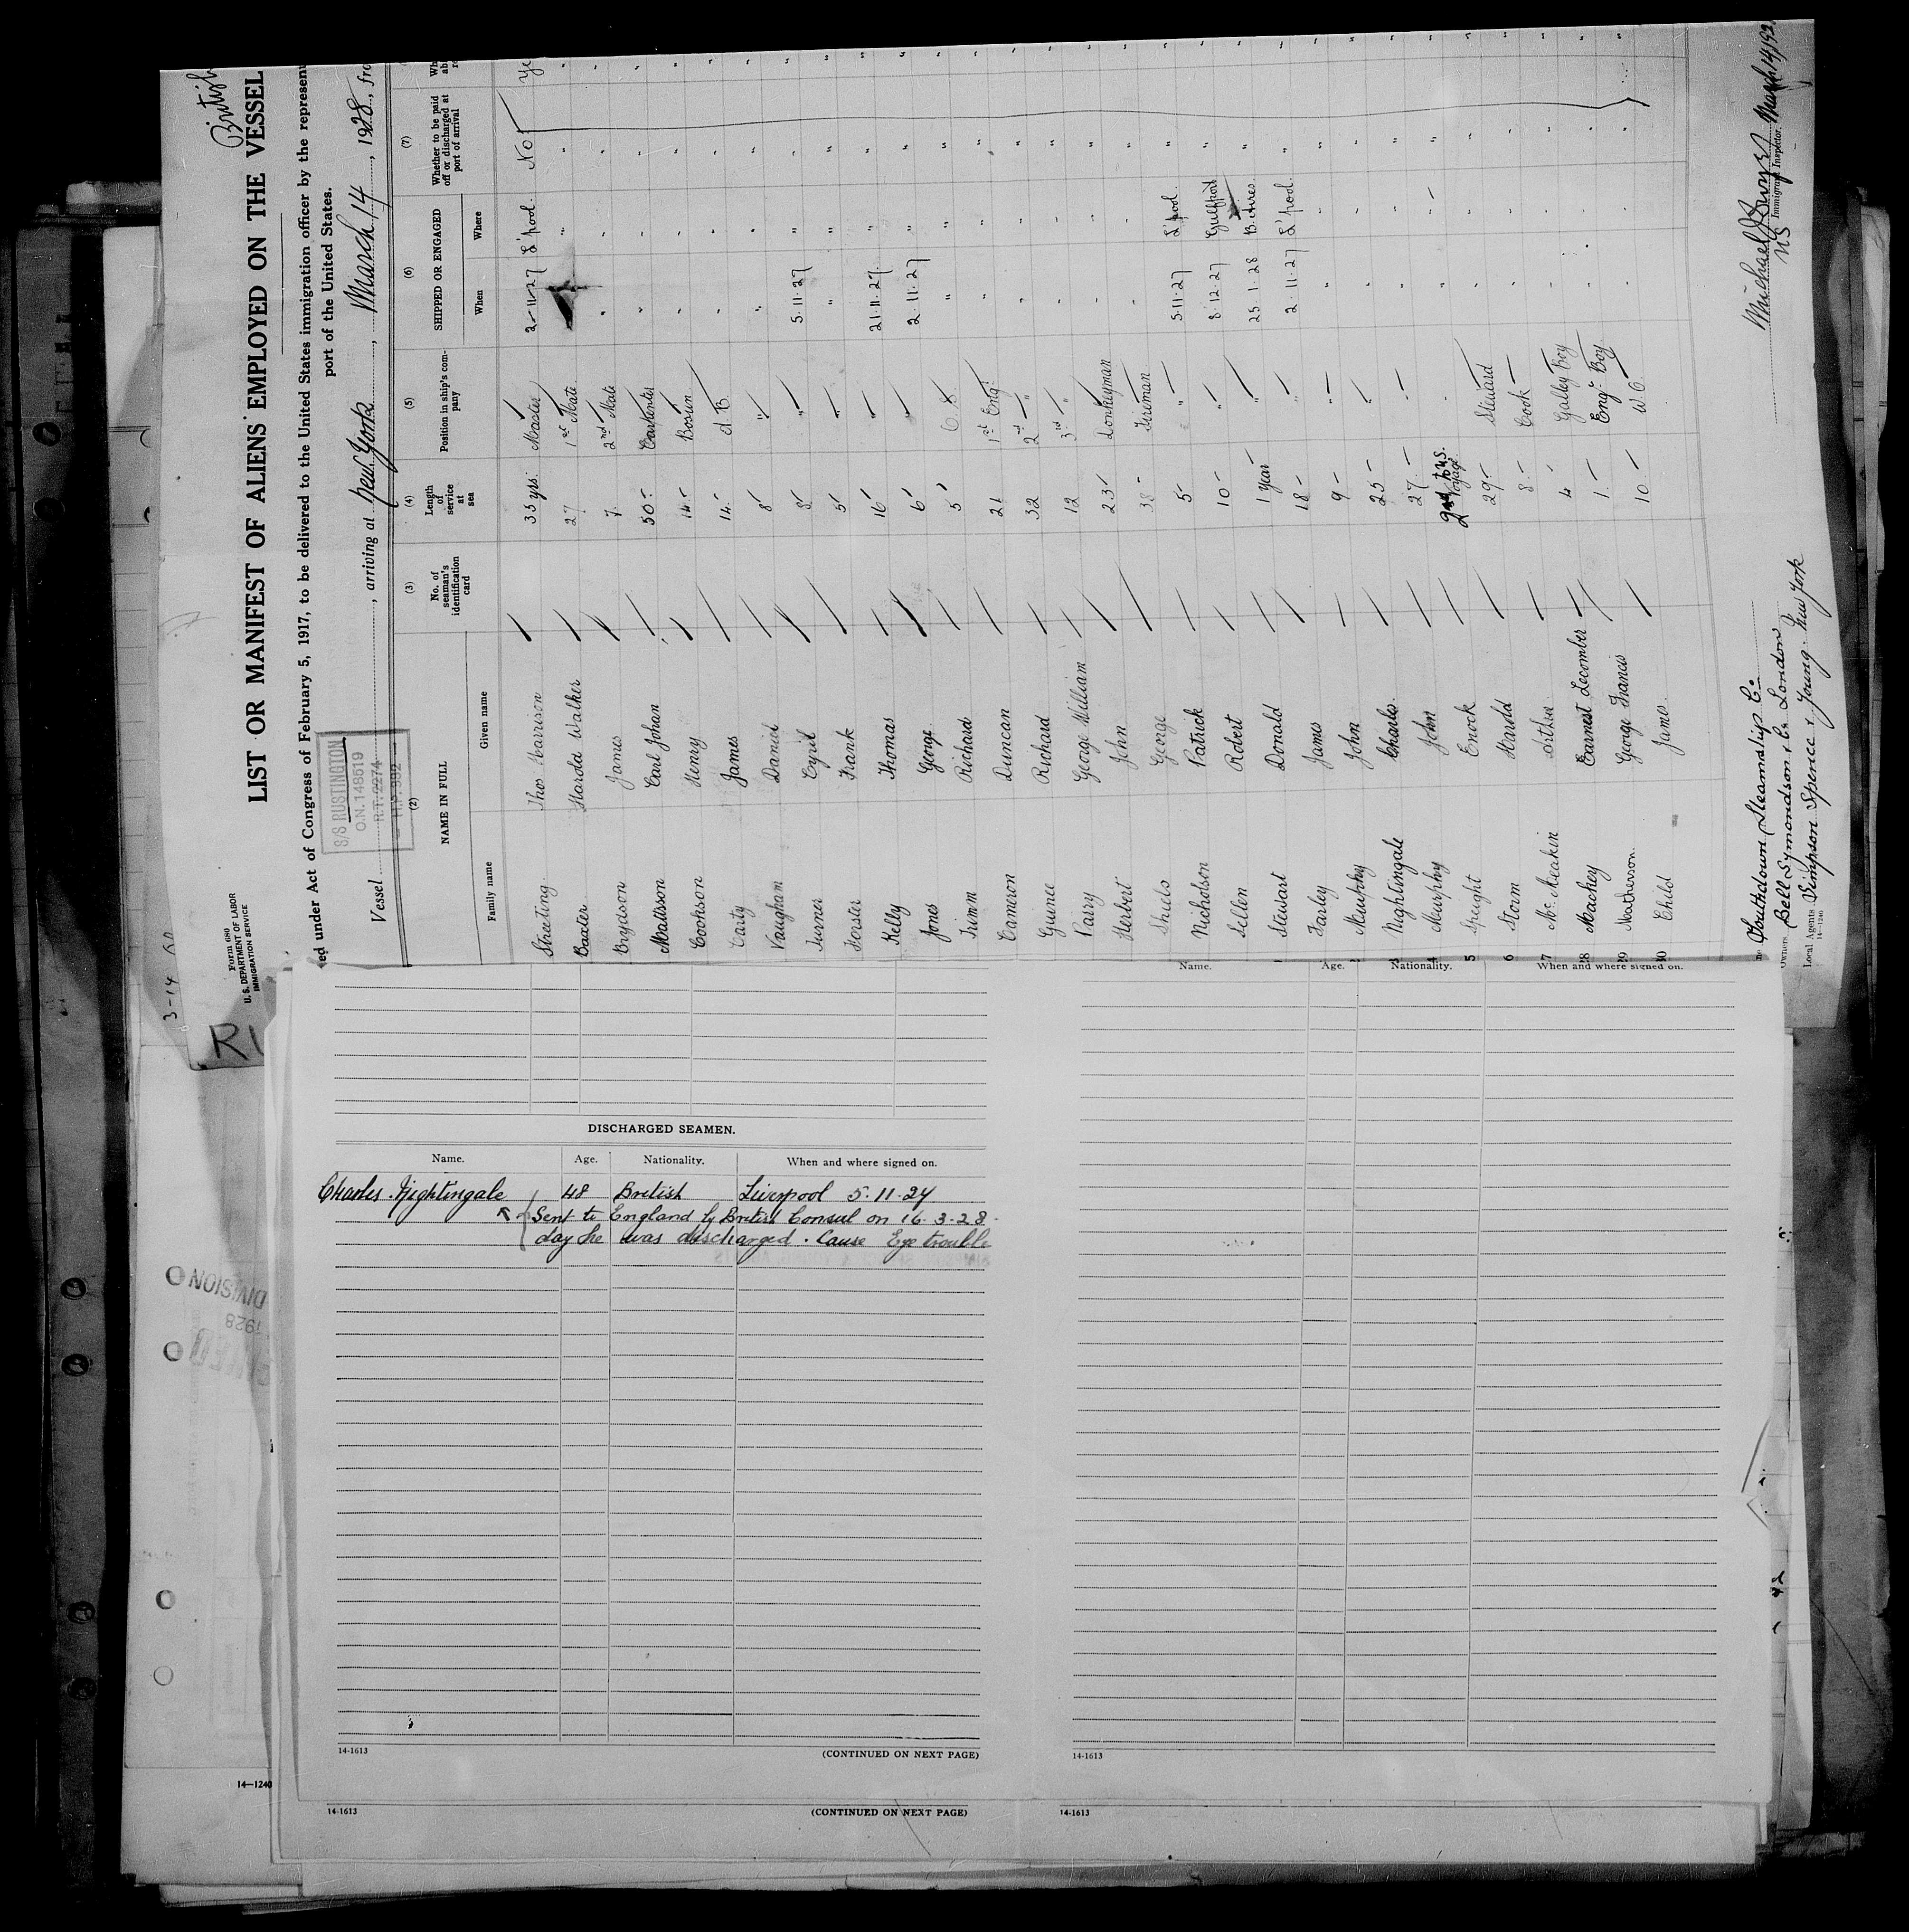 3-14
British
Form 680
U. S. DEPARTMENT OF LABOR
IMMIGRATION SERVICE
LIST OR MANIFEST OF ALIENS EMPLOYED ON THE VESSEL
ed under Act of Congress of February 5, 1917, to be delivered to the United States immigration officer by the represent
port of the United States.
S/S RUSTINGTON
O.N. 148519
R.T. 2274
H.P. 392
Vessel , arriving at New York , March 14 , 1928, fro
(2) (3) (4) (5) (6) (7)
NAME IN FULL No. of seaman's identification card Length of service at sea Position in ship's company SHIPPED OR ENGAGED Whether to be paid off or discharged at port of arrival
Family name Given name When Where
Streeting Thos Harrison 35 yrs. Master 2-11-27 L'pool No Ye
Baxter Harold Walker 27 1st Mate " "
Brydson James 7 2nd Mate " " "
Mattsson Carl Johan 50 Carpenter " " "
Cookson Henry 14 Bosun " " "
Carty James 14 A B " " "
Vaugham Daniel 8 " " " "
Turner Cyril 8 " 5.11.27 " "
Forster Frank 5 " " " "
Kelly Thomas 16 " 21.11.27 " "
Jones George 6 " 2.11.27 " "
Trimm Richard 5 " " "
Cameron Duncan 21 1st Eng. " " "
Guinee Richard 32 2nd " " " "
Parry George William 12 3rd " " " "
Herbert John 23 Donkeyman " " "
Shiels George 38 Fireman " " "
Nicholson Patrick 5 " 5.11.27 L'pool "
Sellen Robert 10 " 8.12.27 Gulfport "
Stewart Donald 1 year " 25.1.28 B. Aires "
Farley James 18 " 2.11.27 L'pool "
Murphy John 9 " " " "
3 Nightingale Charles 25 " " " "
4 Murphy John 27 " " " "
5 Speight Enock 2nd Voyage " " " "
6 Storm Harold 29 Steward " " "
7 McMeakin Arthur 8 Cook " " "
28 Mackey Earnest December 4 Galley Boy " " "
29 Mathewson George Francis 1 Eng. Boy " " "
30 Child James 10 " " "
Southdown Steamship Co.
Owners Bell Symondson & Co. London
Local Agents Simpson Spence & Young. New York
14-1240
Michael
US Immigrant Inspector. March 14/192
RU
DIVISION
1928
DISCHARGED SEAMEN.
Name. Age. Nationality. When and where signed on.
Charles Nightingale 48 British Liverpool 5.11.27
Sent to England by British Consul on 16.3.28
day he was discharged. Cause Eye trouble
14-1613 (CONTINUED ON NEXT PAGE)
Name. Age. Nationality. When and where signed on.
14-1613
14—1240
14-1613 (CONTINUED ON NEXT PAGE)
14-1613
42